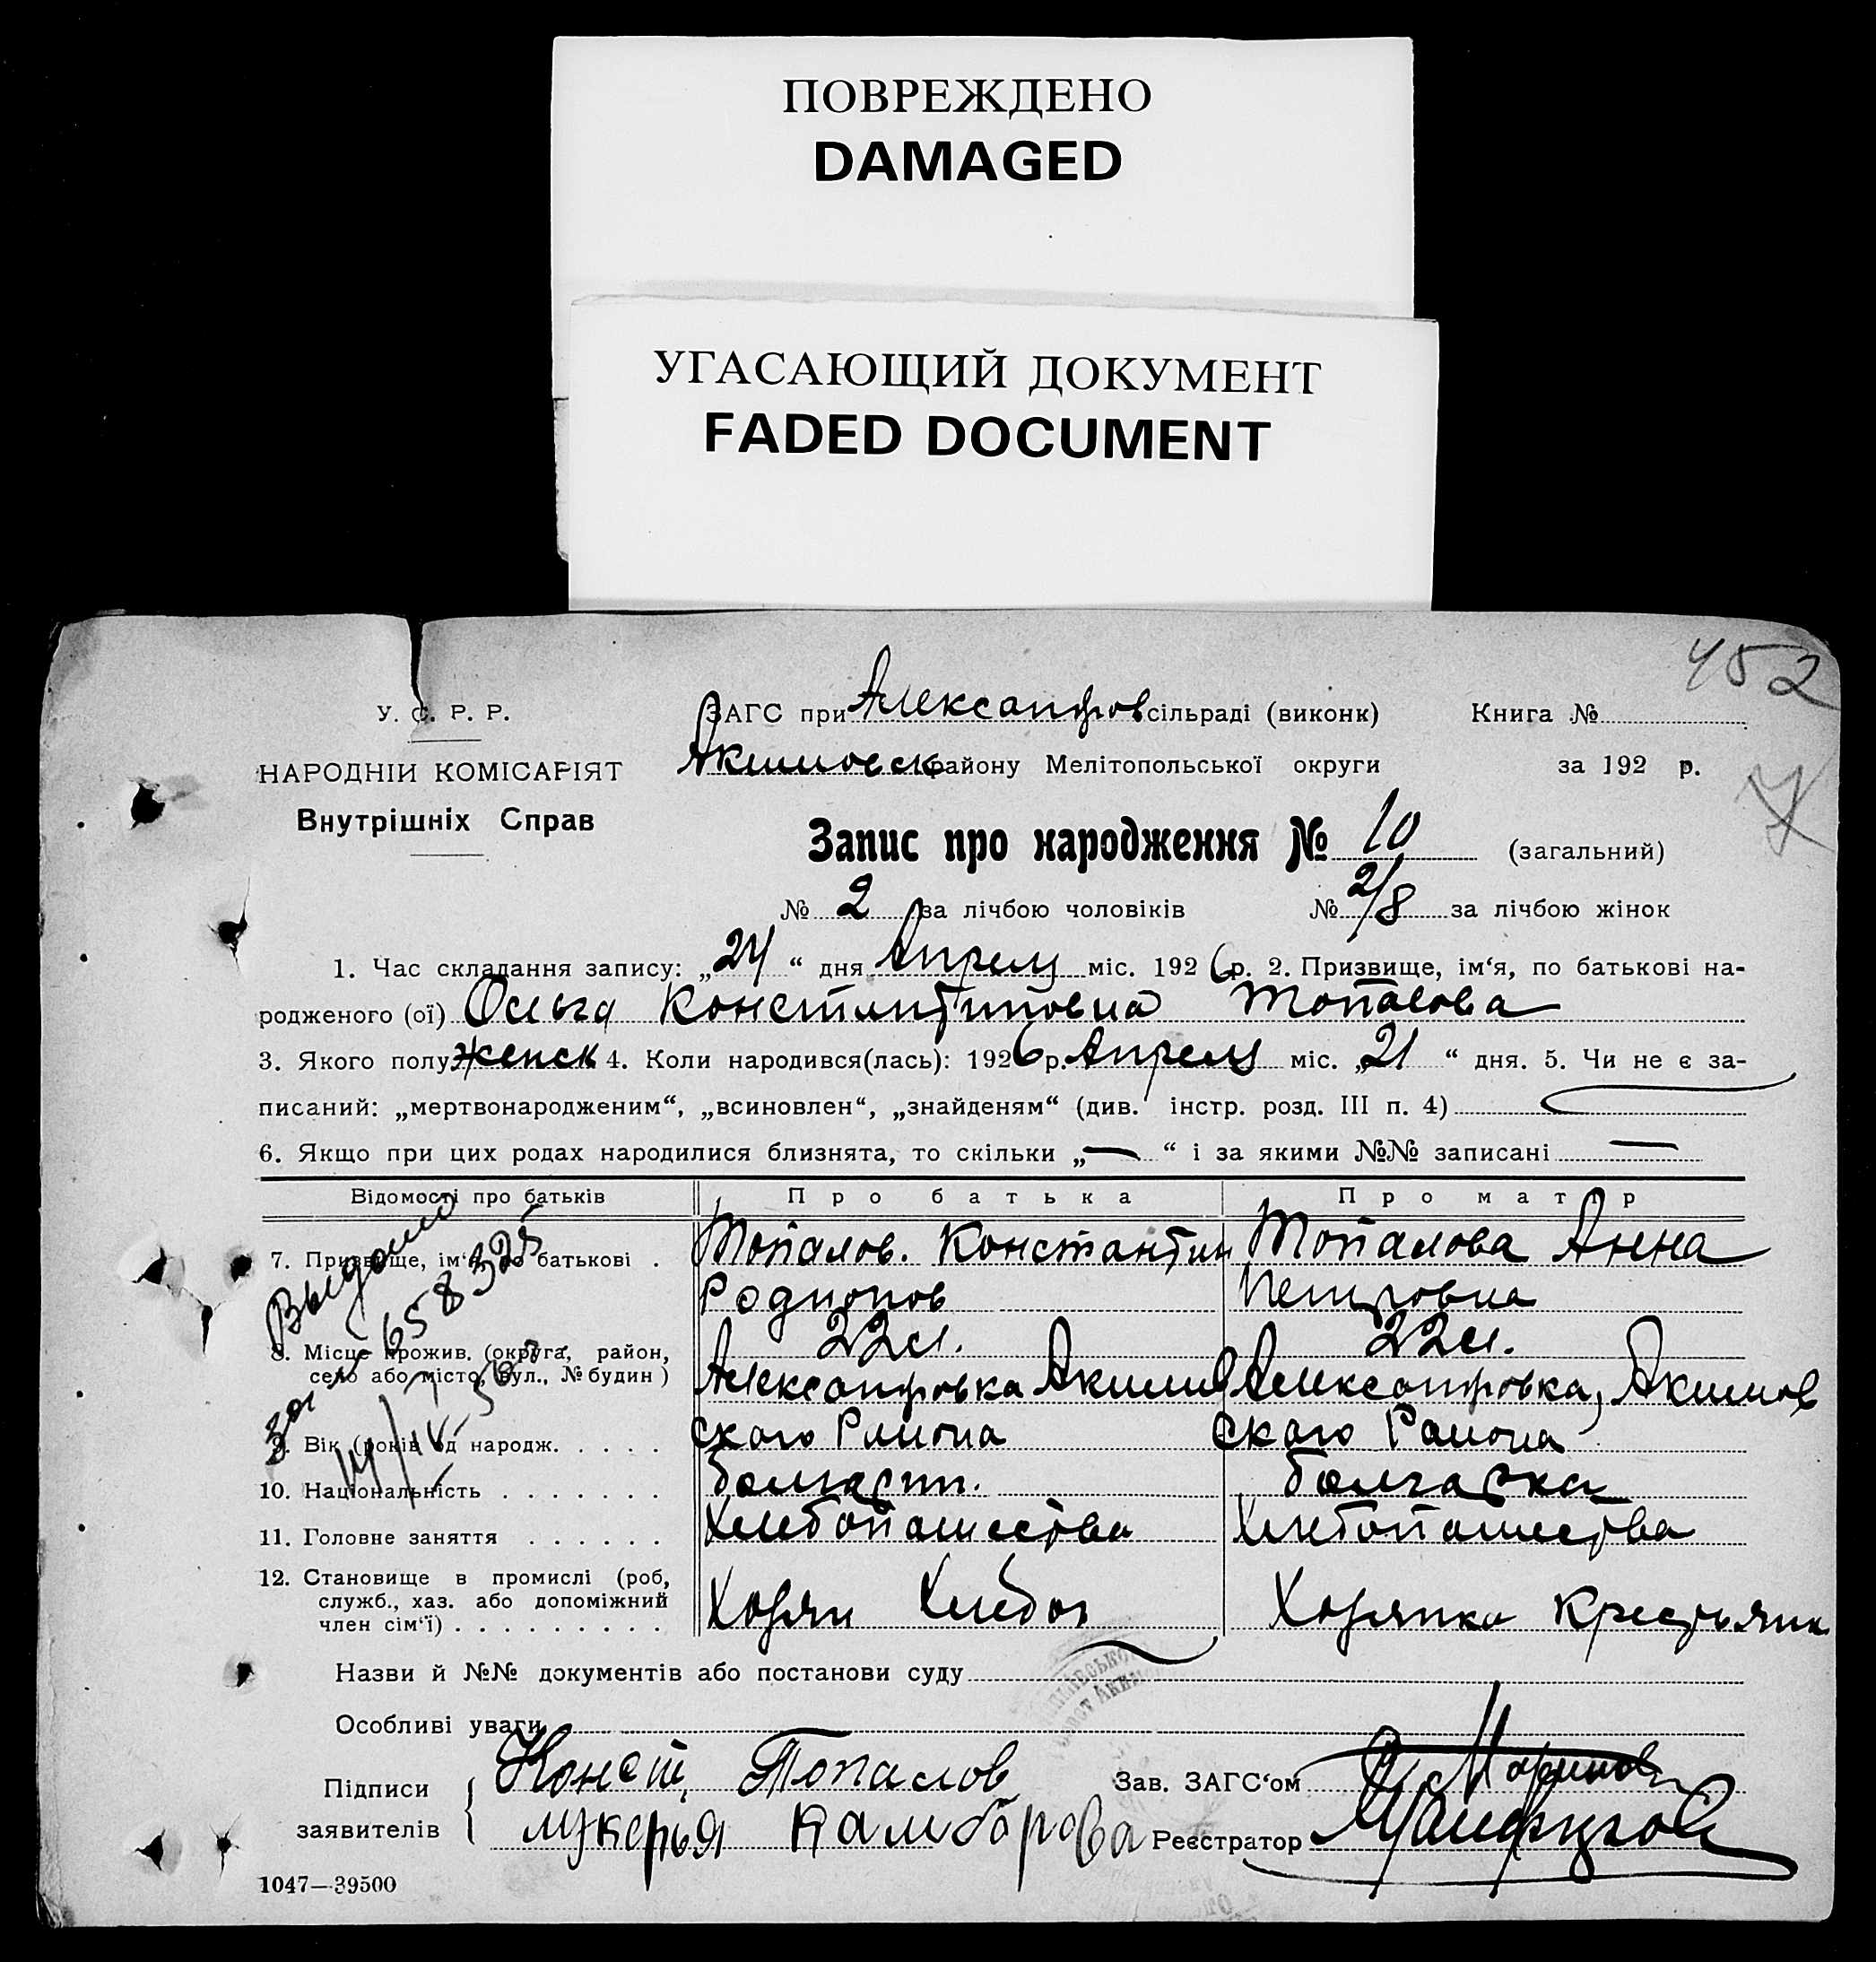 ПОВРЕЖДЕНО
DAMAGED
УГАСАЮЩИЙ ДОКУМЕНТ
FADED DOCUMENT
452
У. С. Р. Р.
НАРОДНІЙ КОМІСАРІЯТ
Внутрішніх Справ
ЗАГС при Александров сільраді (виконк) Книга №
Акимовск району Мелітопольської округи за 192 р.
Запис про народження № 10 (загальний)
№ 2 за лічбою чоловіків № 2/8 за лічбою жінок
1. Час складання запису: „24“ дня Апреля міс. 1926 р. 2. Призвище, ім‘я, по батькові на-
родженого (ої) Ольга Константиновна Топалова
3. Якого полу женск 4. Коли народився(лась): 1926 р. Апреля міс. „21“ дня. 5. Чи не є за-
писаний: „мертвонародженим“, „всиновлен“, „знайденям“ (див. інстр. розд. III п. 4)
6. Якщо при цих родах народилися близнята, то скільки „—“ і за якими №№ записані —
Відомості про батьків Про батька Про матір
7. Призвище, ім‘я, по батькові . Топалов. Константин Топалова Анна
Родионов Петровна
22 л. 22 л.
8. Місце прожив. (округа, район,
село або місто, вул., № будин) Александровка Акимов Александровка, Акимов
9. Вік (років од народж. . . . . ского Района ского Района
10. Національність . . . . . . . болгарин. болгарка
11. Головне заняття . . . . . . Хлебопашества Хлебопашества
12. Становище в промислі (роб,
служб., хаз. або допоміжний
член сім‘ї) . . . . . . . . . Хозяин Хлебоп Хозяйка Крестьянк
Выдано
за № 658325
14/IV-
Назви й №№ документів або постанови суду
Особливі уваги
Підписи
заявителів
Конст. Топалов
лукерья Камбарова
Зав. ЗАГС‘ом Маринов
Реєстратор
1047—39500